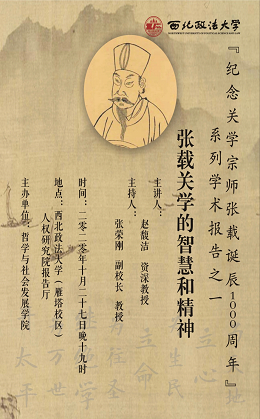 西北政法大学
NORTHWEST UNIVERSITY OF POLITICAL SCIENCE AND LAW
『纪念关学宗师张载诞辰1000周年』
系列学术报告之一
张载关学的智慧和精神
主讲人：
赵馥洁 资深教授
主持人：
张荣刚 副校长 教授
时间：二〇二〇年十月二十七日晚十九时
地点：西北政法大学（雁塔校区）
人权研究院报告厅
主办单位：哲学与社会发展学院